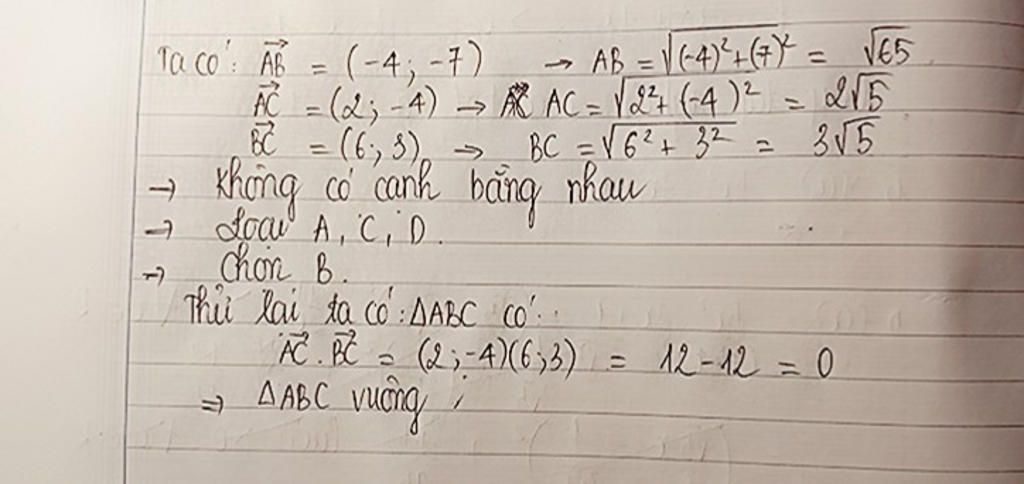 Ta có: AB→ = (-4; -7) → AB = √((-4)²+(7)²) = √65
AC→ = (2; -4) → AC = √(2²+(-4)²) = 2√5
BC→ = (6; 3) → BC = √(6² + 3²) = 3√5
→ Không có cạnh bằng nhau
→ Loại A, C, D.
→ Chọn B.
Thử lại ta có: ΔABC có:
AC→ . BC→ = (2; -4)(6;3) = 12 - 12 = 0
⇒ ΔABC vuông